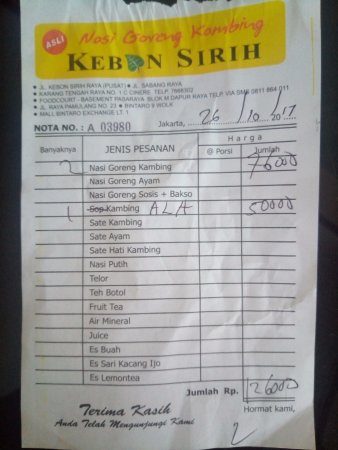 ASLI
Nasi Goreng Kambing
KEBON SIRIH
JL. KEBON SIRIH RAYA (PUSAT) JL. SABANG RAYA
KARANG TENGAH RAYA NO. 1 C CINERE. TELP. 7666302
FOODCOURT - BASEMENT PASARAYA BLOK M DAPUR RAYA TELP. VIA SMS 0811 864 011
JL. RAYA PAMULANG NO. 23 BINTARO 9 WOLK
MALL BINTARO EXCHANGE LT. 1
NOTA NO. : A 03980 Jakarta, 26/10/2017
Banyaknya JENIS PESANAN Harga
@ Porsi Jumlah
2 Nasi Goreng Kambing 76000
Nasi Goreng Ayam
Nasi Goreng Sosis + Bakso
1 Sop Kambing ALA 50000
Sate Kambing
Sate Ayam
Sate Hati Kambing
Nasi Putih
Telor
Teh Botol
Fruit Tea
Air Mineral
Juice
Es Buah
Es Sari Kacang Ijo
Es Lemontea
Jumlah Rp. 126000
Terima Kasih Hormat kami,
Anda Telah Mengunjungi Kami